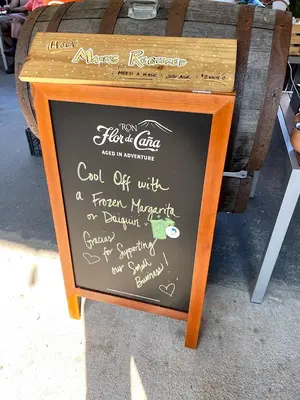 Mask Required
NEED A MASK JUST ASK
RON
Flor de Caña
AGED IN ADVENTURE
Cool Off with
a Frozen Margarita
or Daiquiri
Gracias
for Supporting
our Small
Business!